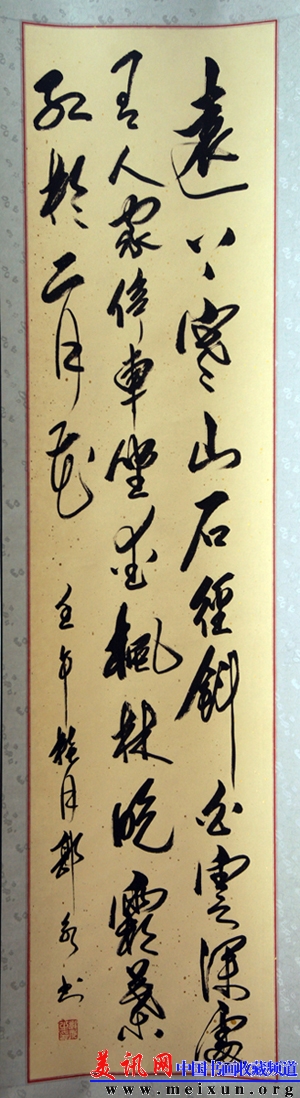 遠上寒山石徑斜白雲深處
有人家停車坐愛楓林晚霜葉
紅於二月花
壬午桂月 书
美讯网 中国书画收藏频道
www.meixun.org